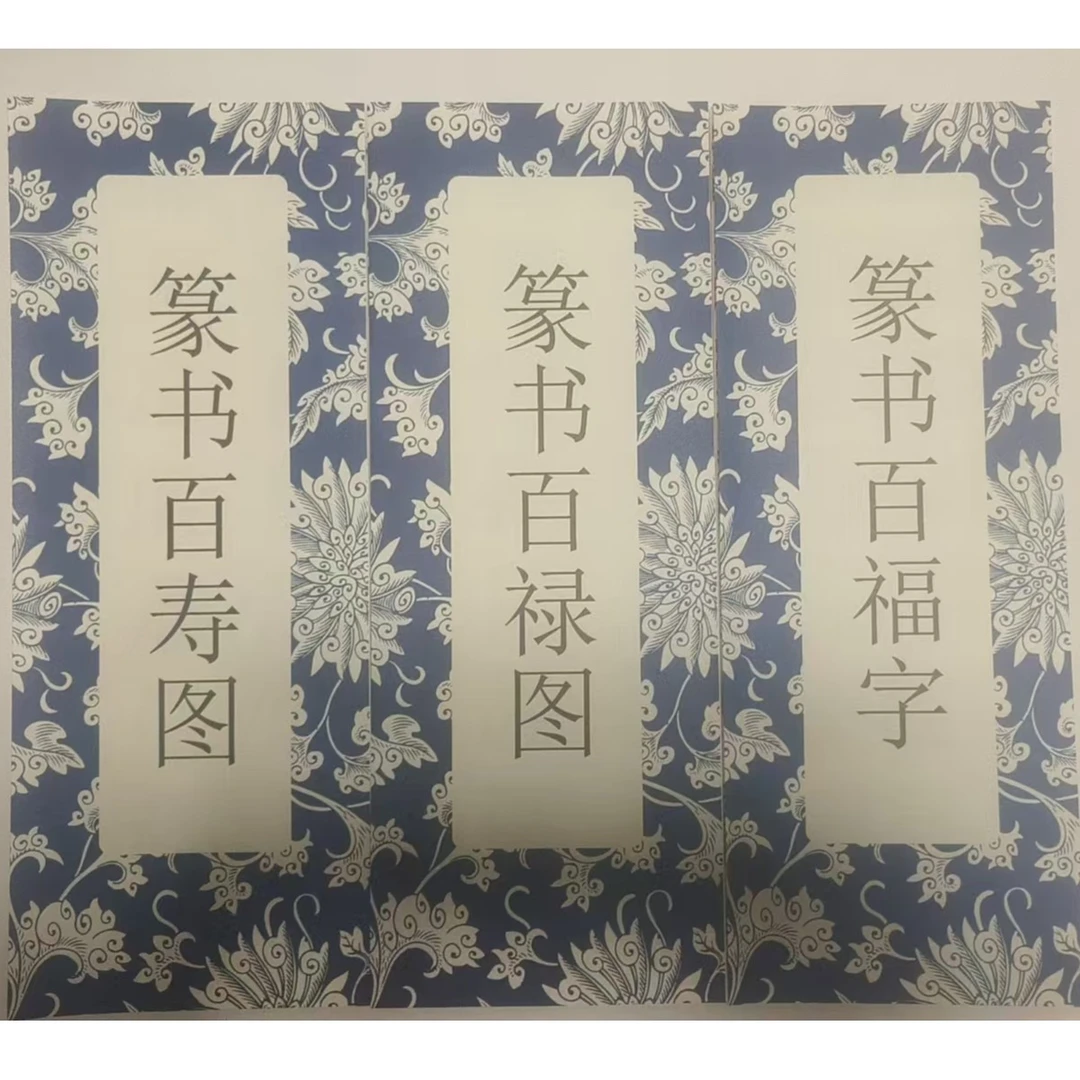 篆书百寿图
篆书百禄图
篆书百福字